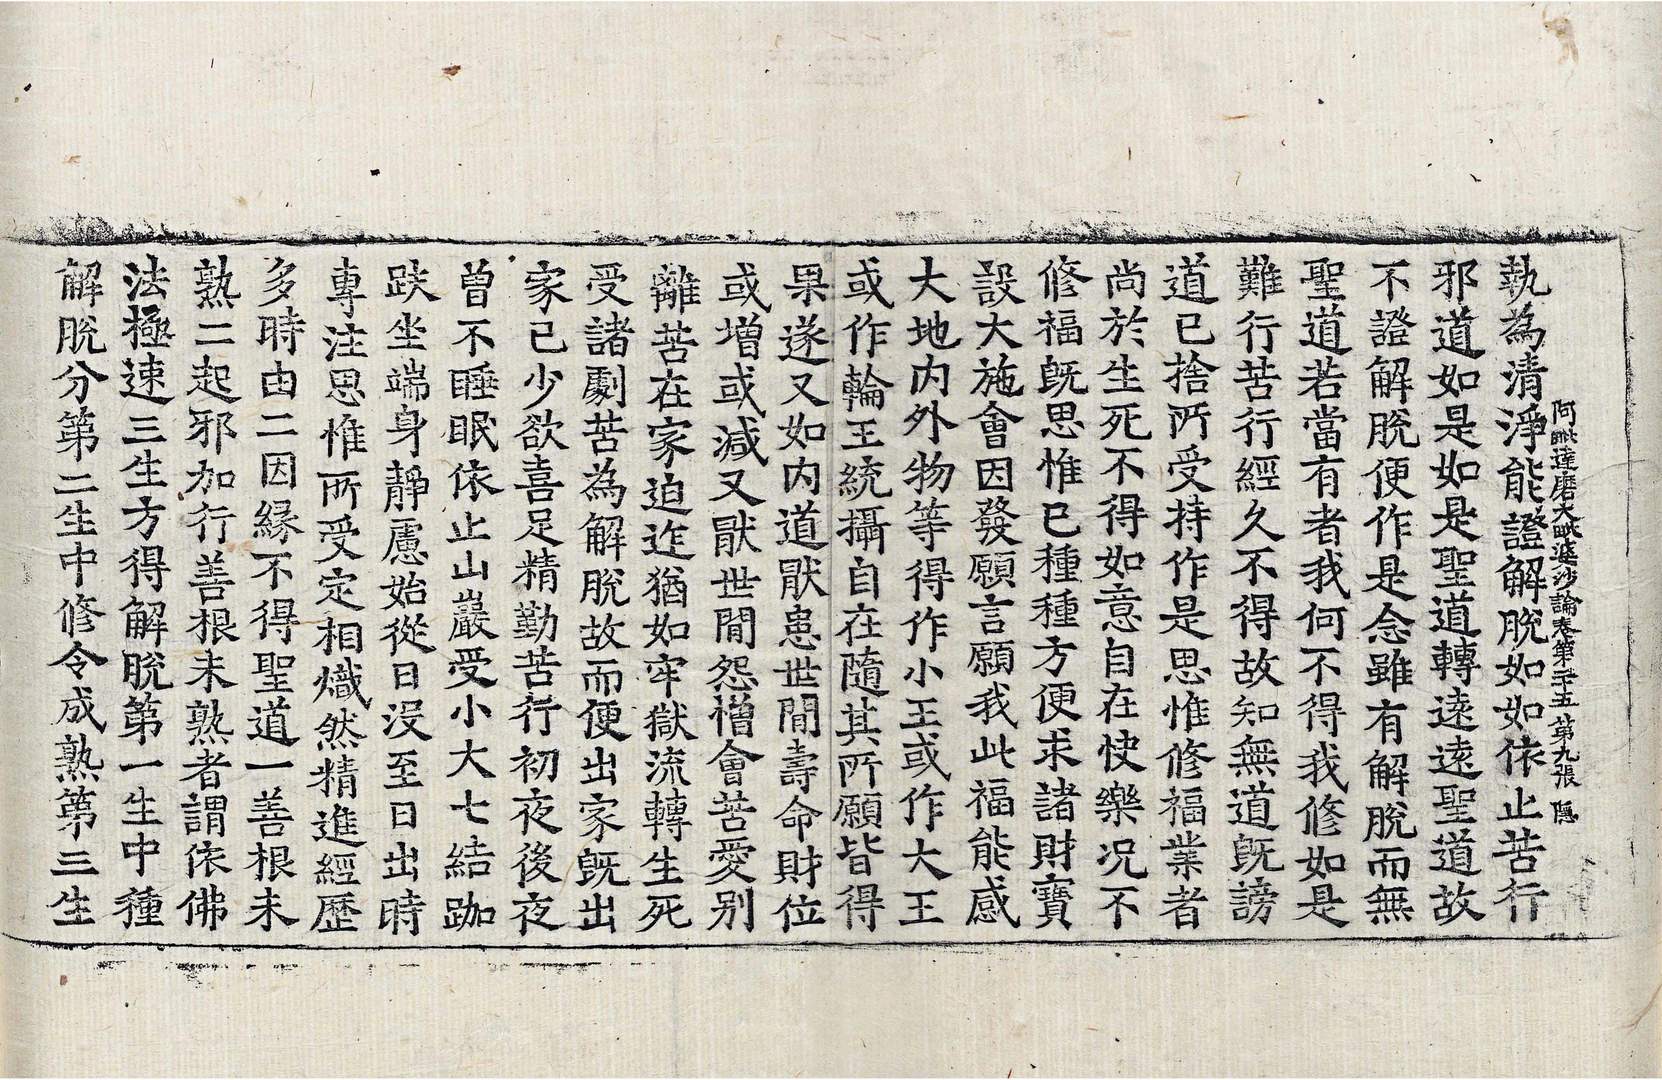 阿毗達磨大毗婆沙論卷第三十五 第九張 隱
執為清淨能證解脫如如依止苦行
邪道如是如是聖道轉遠遠聖道故
不證解脫便作是念雖有解脫而無
聖道若當有者我何不得我修如是
難行苦行經久不得故知無道既謗
道已捨所受持作是思惟修福業者
尚於生死不得如意自在快樂况不
修福既思惟已種種方便求諸財寶
設大施會因發願言願我此福能感
大地內外物等得作小王或作大王
或作輪王統攝自在隨其所願皆得
果遂又如內道猒患世間壽命財位
或增或減又猒世間怨憎會苦愛別
離苦在家迫迮猶如牢獄流轉生死
受諸劇苦為解脫故而便出家既出
家已少欲喜足精勤苦行初夜後夜
曾不睡眠依止山巖受小大七結跏
趺坐端身靜慮始從日沒至日出時
專注思惟所受定相熾然精進經歷
多時由二因緣不得聖道一善根未
熟二起邪加行善根未熟者謂依佛
法極速三生方得解脫第一生中種
解脫分第二生中修令成熟第三生